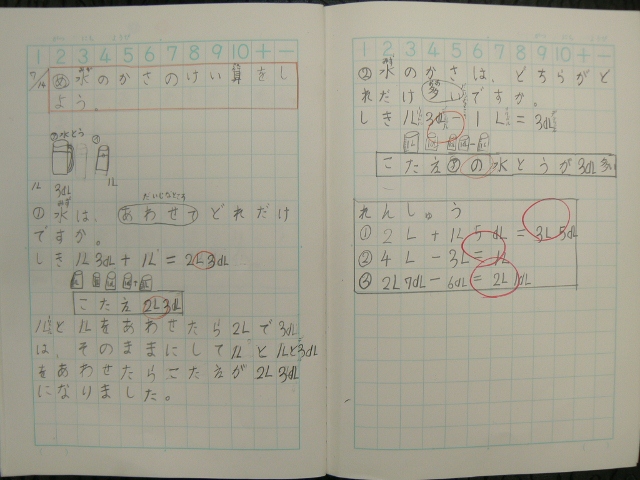 1 2 3 4 5 6 7 8 9 10 + −
7/14
め 水のかさのけい算をし
よう。
あ水とう い
1L 3dL 1L
だいじなところ
① 水は、あわせてどれだけ
ですか。
しき 1L3dL + 1L = 2L3dL
こたえ 2L3dL
1Lと1Lをあわせたら2Lで3dL
は、そのままにして1Lと1Lと3dL
をあわせたらこたえが2L3dL
になりました。
1 2 3 4 5 6 7 8 9 10 + −
② 水のかさは、どちらがど
れだけ多いですか。
しき 1L3dL − 1L = 3dL
こたえ あの水とうが3dL多い
れんしゅう
① 2L + 1L5dL = 3L5dL
② 4L − 3L = 1L
③ 2L7dL − 6dL = 2L1dL